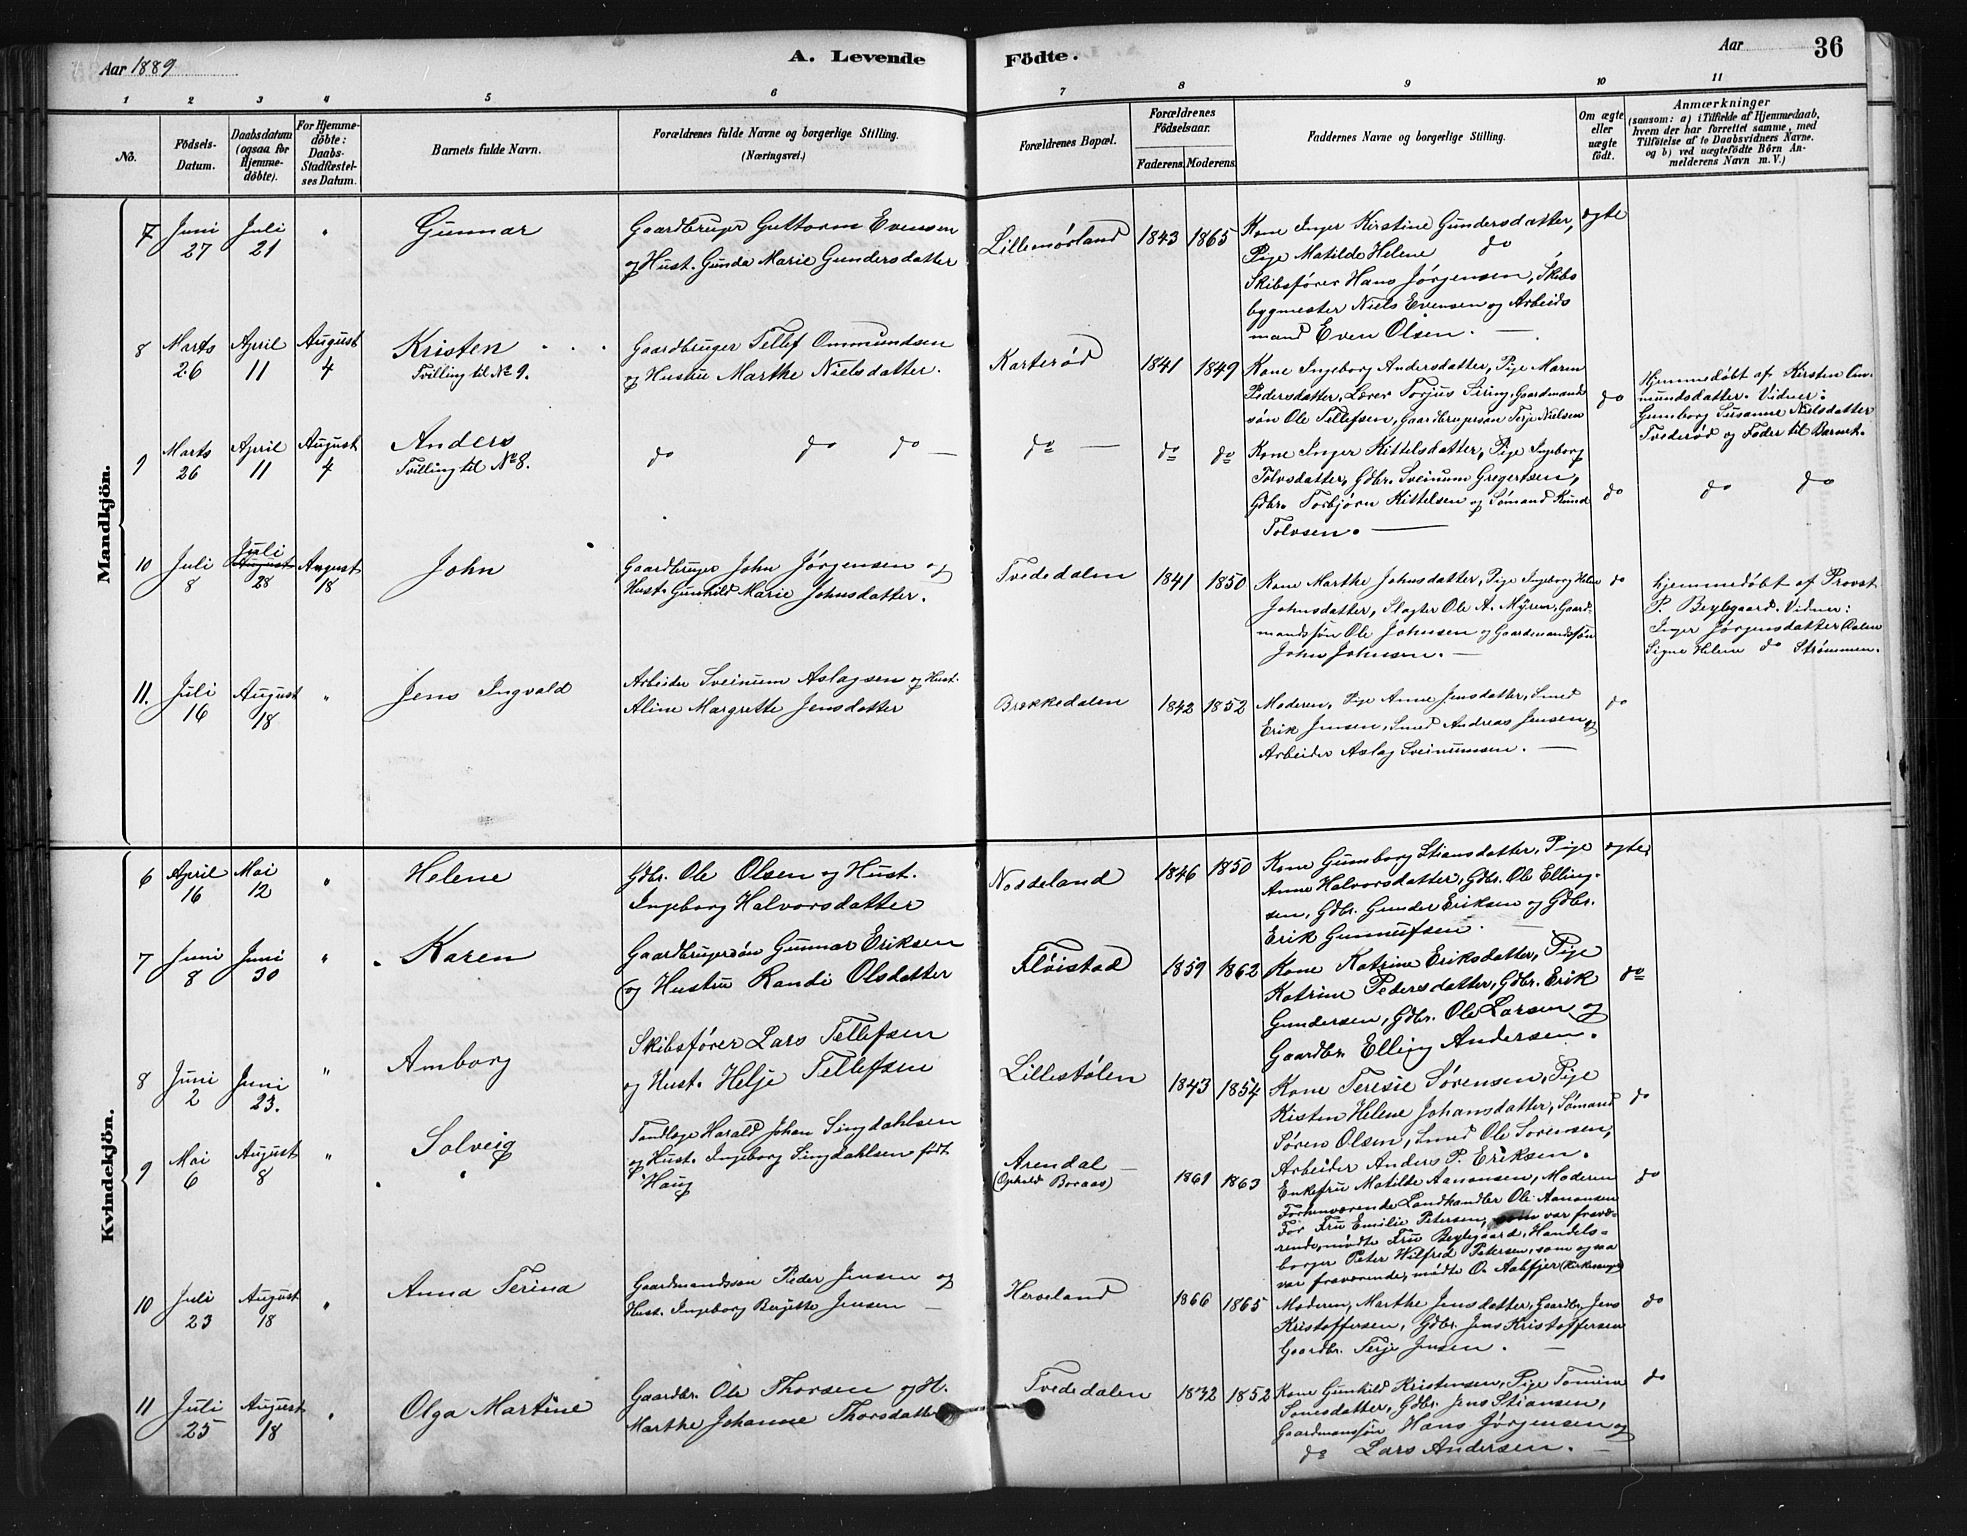 Aar 1889
A. Levende
Födte.
Aar
36
1 2 3 4 5 6 7 8 9 10 11
No.
Födsels-
Datum.
Daabsdatum
(ogsaa for
Hjemme-
döbte).
For Hjemme-
döbte:
Daabs-
Stadfæstel-
ses Datum.
Barnets fulde Navn.
Forældrenes fulde Navne og borgerlige Stilling.
(Næringsvei.)
Forældrenes Bopæl.
Forældrenes
Födselsaar.
Faderens. Moderens.
Faddernes Navne og borgerlige Stilling.
Om ægte
eller
uægte
födt.
Anmærkninger
(saasom: a) i Tilfælde af Hjemmedaab,
hvem der har forrettet samme, med
Tilföielse af to Daabsvidners Navne.
og b) ved uægtefödte Börn An-
melderens Navn m. V.)
Mandkjön.
7
Juni
27
Juli
21
"
Gunnar
Gaardbruger Guttorm Evensen
og Hust. Gunda Marie Gundersdatter
Lillemörland
1843 1865
Kone Inger Kirstine Gundersdatter,
Pige Matilde Helene do
Skibsfører Hans Jørgensen, Skibs
bygmester Niels Evensen og Arbeids
mand Even Olsen.
ægte
8
Marts
26
April
11
August
4
Kristen
Tvilling til No 9.
Gaardbruger Tellef Ommundsen
og Hustru Marthe Nielsdatter.
Karterød
1841 1849
Kone Ingeborg Andersdatter, Pige Maren
Pedersdatter, Lærer Torjus Siring, Gaardmand
søn Ole Tellefsen, Gaardbrugersøn Terje Nielsen
do
Hjemmedøbt af Kirsten Om-
mundsdatter. Vidner:
Gunborg Susanne Nielsdatter
Tvederød og Fader til Barnet.
9
Marts
26
April
11
August
4
Anders
Tvilling til No 8.
do do do
do
do do
Kone Inger Kittelsdatter, Pige Ingeborg
Tolvsdatter, Gdbr. Sveinum Gregertsen,
Gdbr. Torbjørn Kittelsen og Sømand Knud
Tolvsen.
do
do do
10
Juli
8
Juli
August
28
August
18
John
Gaardbruger John Jørgensen og
Hust. Gunhild Marie Johnsdatter.
Tvededalen
1841 1850
Kone Marthe Johnsdatter, Pige Ingeborg Helen
Johnsdatter, Slagter Ole A. Myren, Gaard-
mandssøn Ole Johnsen og Gaardmandssøn
John Johnsen.
do
hjemmedøbt af Provst
P. Beylegaard. Vidner:
Inger Jørgensdatter Dalen
Signe Helene do Strømmen.
11.
Juli
16
August
18
"
Jens Ingvald
Arbeider Sveinum Aslagsen og Hust.
Aline Margrette Jensdatter
Brekkedalen
1842 1852
Moderen, Pige Anne Jensdatter, Smed
Erik Jensen, Smed Andreas Jensen og
Arbeider Aslag Sveinumsen.
do
Kvindekjön.
6
April
16
Mai
12
"
Helene
Gdbr. Ole Olsen og Hust.
Ingeborg Halvorsdatter
Nodeland
1846 1850
Kone Gunborg Stiansdatter, Pige
Anne Halvorsdatter, Gdbr. Ole Elling-
sen, Gdbr. Gunder Eriksen og Gdbr.
Erik Gunnufsen.
ægte
7
Juni
8
Juni
30
"
Karen
Gaardbrugersøn Gunnar Eriksen
og Hustru Randi Olsdatter
Fløistad
1859 1862
Kone Katrine Eriksdatter, Pige
Katrine Pedersdatter, Gdbr. Erik
Gundersen, Gdbr. Ole Larsen og
Gaardbr. Elling Andersen.
do
8
Juni
2
Juni
23.
"
Amborg
Skibsfører Lars Tellefsen
og Hust. Helje Tellefsen
Lillestølen
1843 1854
Kone Teresie Sørensen, Pige
Kisten Helene Johansdatter, Sømand
Søren Olsen, Smed Ole Sorensen,
Arbeider Anders P. Eriksen.
do
9
Mai
6
August
8
"
Solveig
Tandlæge Harald Johan Singdahlsen
og Hust. Ingeborg Singdahlsen født
Haug
Arendal
(Ophold Boraas)
1861 1863
Enkefru Matilde Aanonsen, Moderen
Forhenværende Landhandler Ole Aanonsen
For Fru Emilie Petersen, som var fravæ-
rende, mødte Fru Beylegaard, Handels-
borger Peter Wilfred Petersen, som ogsaa
var fraværende, mødte O. Aabfjer (Kirkesanger)
do
10
Juli
23
August
18
"
Anna Terina
Gaardmandssøn Peder Jensen og
Hust. Ingeborg Berjitte Jensen
Herveland
1866 1865
Moderen, Marthe Jensdatter, Gaardbr. Jens
Kristoffersen, Gdbr. Jens Kristoffersen
Gaardbr. Terje Jensen.
do
11
Juli
25
August
18
"
Olga Martine
Gaardbr. Ole Thorsen og H.
Marthe Johanne Thorsdatter
Tvededalen
1832 1852
Kone Gunhild Kristensen, Pige Tomine
Tonesdatter, Gdbr. Jens Stiansen,
Gaardmanssøn Hans Jørgensen og
do Lars Andersen.
do